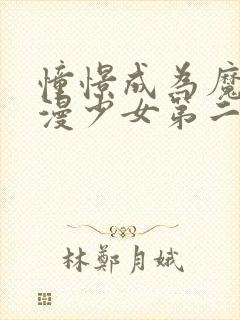 憧憬成為魔
漫少女第二
林鄭月娥